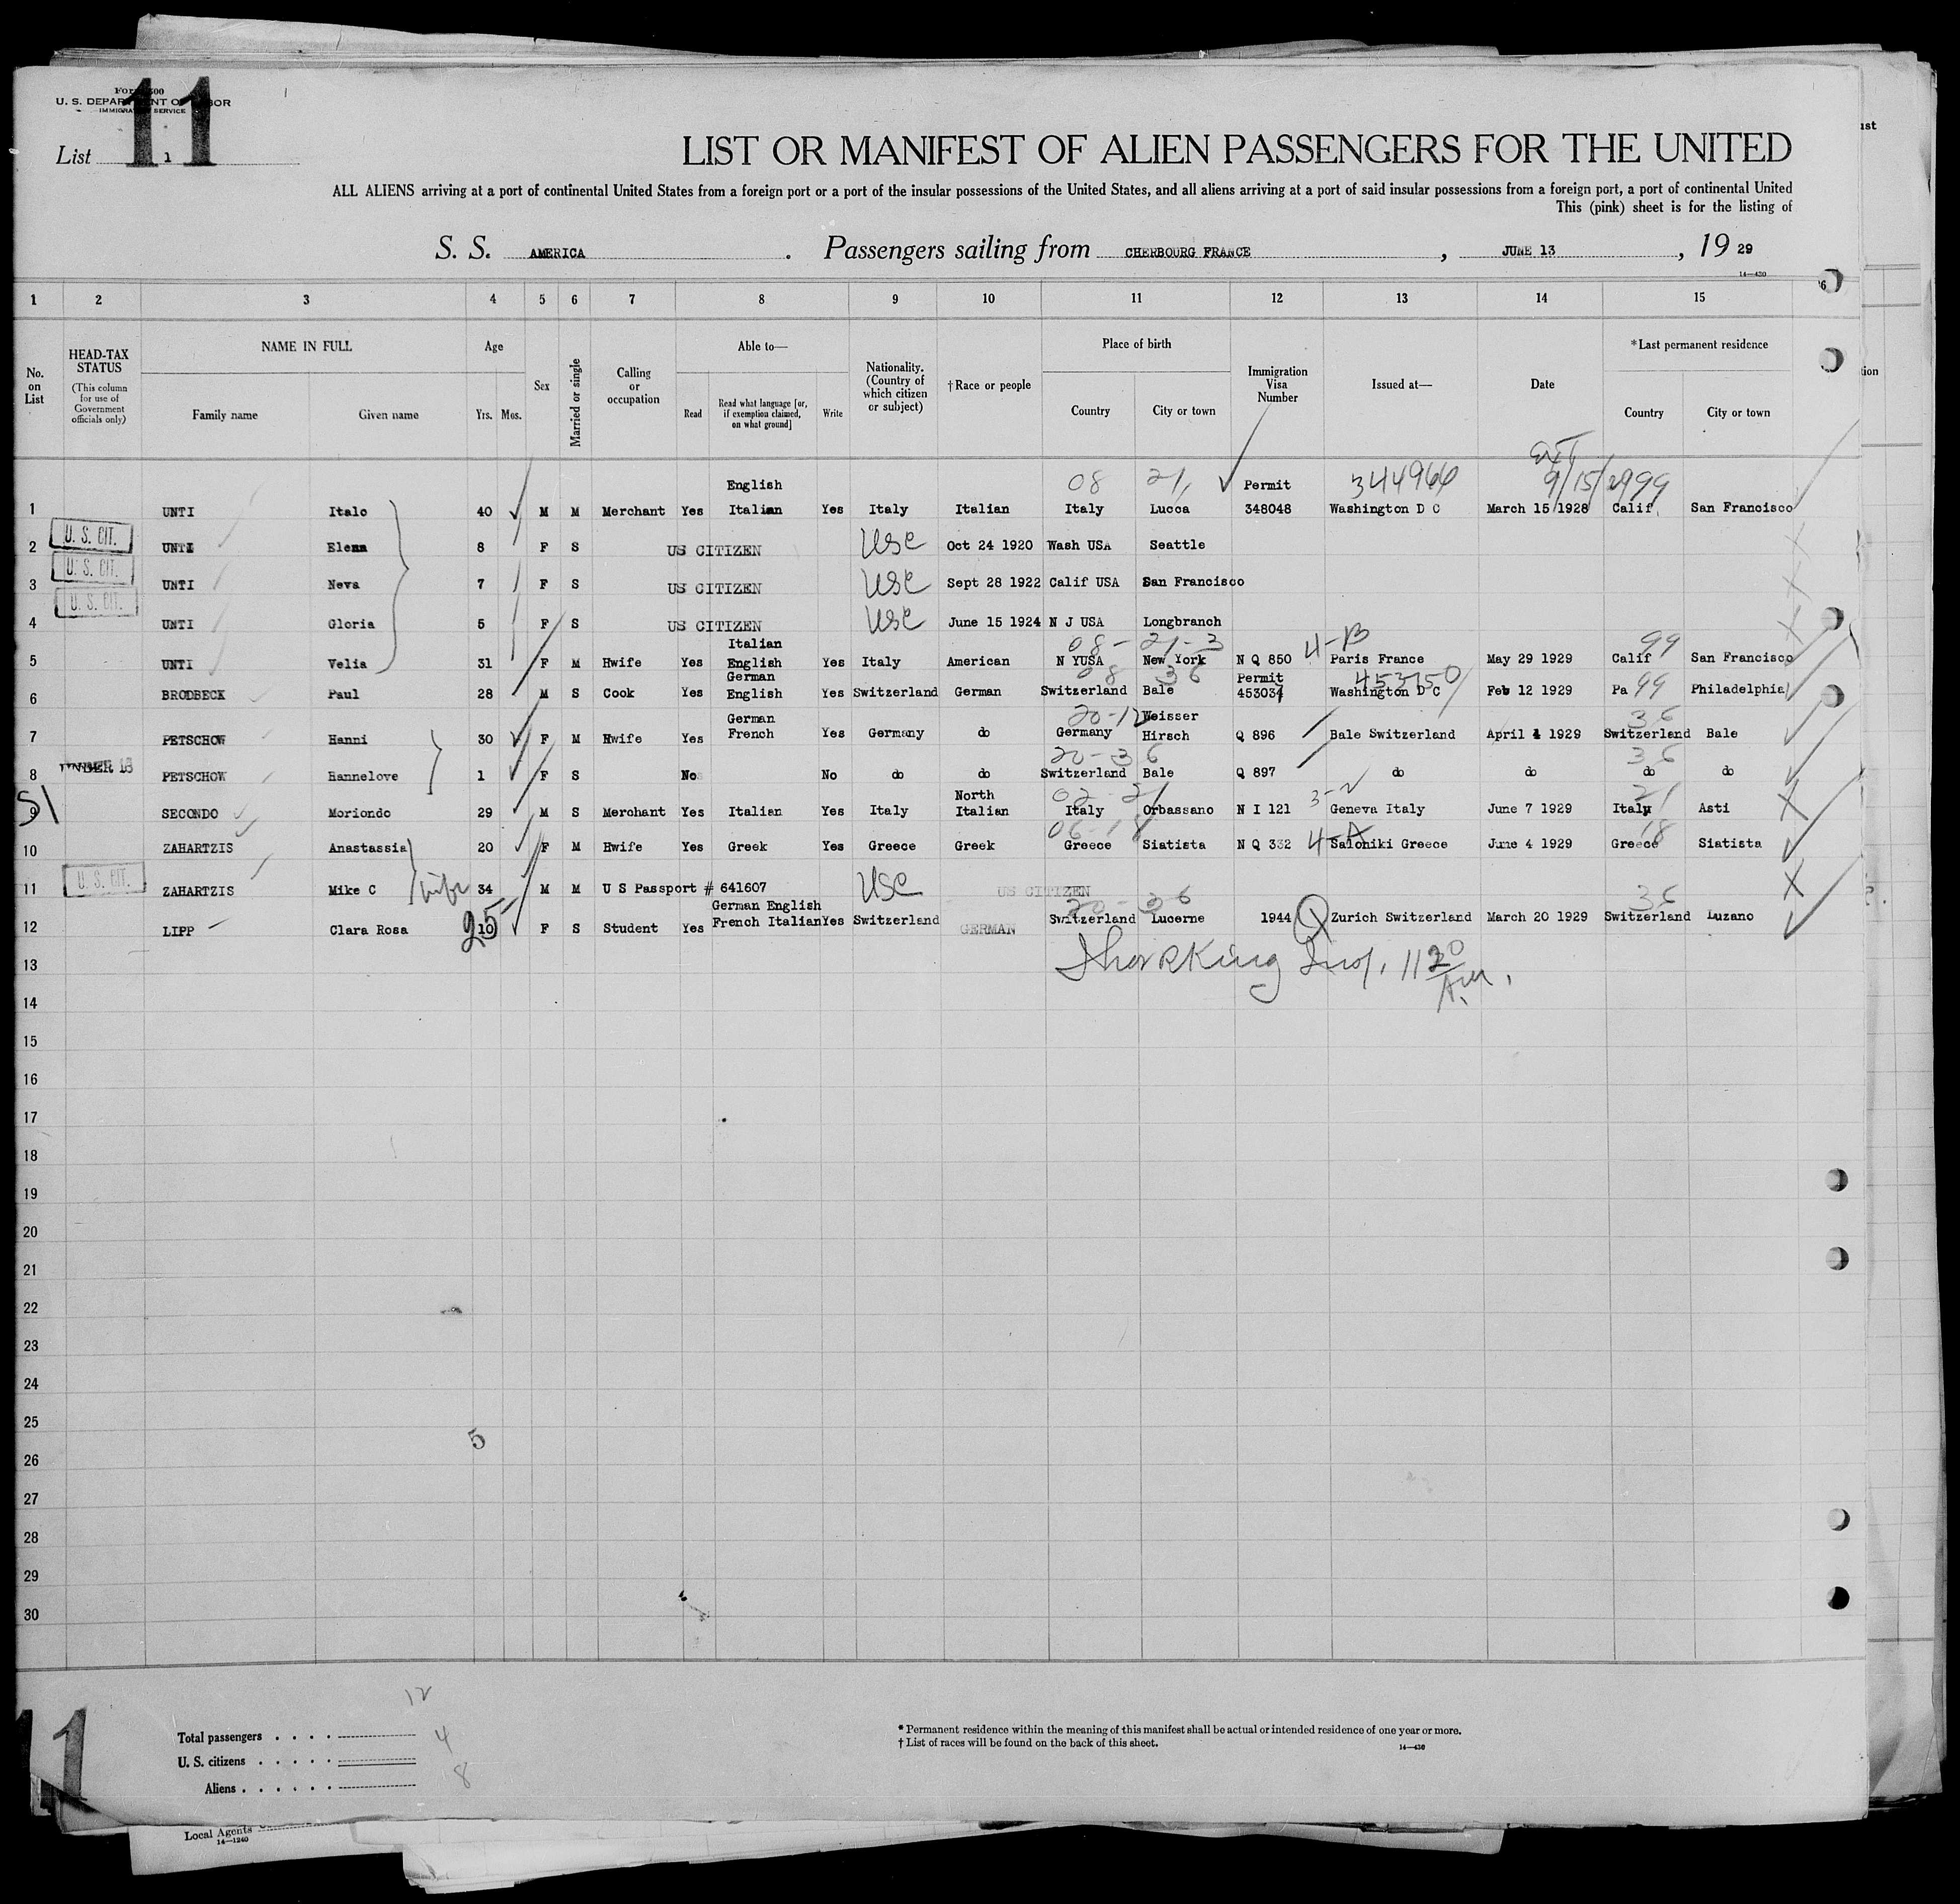 Form 500
U. S. DEPARTMENT OF LABOR
IMMIGRATION SERVICE
11
List 1
LIST OR MANIFEST OF ALIEN PASSENGERS FOR THE UNITED
ALL ALIENS arriving at a port of continental United States from a foreign port or a port of the insular possessions of the United States, and all aliens arriving at a port of said insular possessions from a foreign port, a port of continental United
This (pink) sheet is for the listing of
S. S. AMERICA . Passengers sailing from CHERBOURG FRANCE , JUNE 13 , 19 29
14—430
1 2 3 4 5 6 7 8 9 10 11 12 13 14 15
No. on List
HEAD-TAX STATUS (This column for use of Government officials only)
NAME IN FULL Family name Given name
Age Yrs. Mos.
Sex
Married or single
Calling or occupation
Able to— Read Read what language [or, if exemption claimed, on what ground] Write
Nationality. (Country of which citizen or subject)
†Race or people
Place of birth Country City or town
Immigration Visa Number
Issued at—
Date
*Last permanent residence Country City or town
English 08 21 Permit 344966 Ext 9/15/29 99
1 UNTI Italo 40 M M Merchant Yes Italian Yes Italy Italian Italy Lucca 348048 Washington D C March 15 1928 Calif. San Francisco
U. S. CIT.
2 UNTI Elena 8 F S US CITIZEN USC Oct 24 1920 Wash USA Seattle
U. S. CIT.
3 UNTI Neva 7 F S US CITIZEN USC Sept 28 1922 Calif USA San Francisco
U. S. CIT.
4 UNTI Gloria 5 F S US CITIZEN USC June 15 1924 N J USA Longbranch
Italian 08-21-3 4-B 99
5 UNTI Velia 31 F M Hwife Yes English Yes Italy American N YUSA New York N Q 850 Paris France May 29 1929 Calif San Francisco
German 08 36 Permit 453150
6 BRODBECK Paul 28 M S Cook Yes English Yes Switzerland German Switzerland Bale 453037 Washington D C Feb 12 1929 Pa 99 Philadelphia
German 20-12 Weisser 36
7 PETSCHOW Hanni 30 F M Hwife Yes French Yes Germany do Germany Hirsch Q 896 Bale Switzerland April 4 1929 Switzerland Bale
UNDER 16 20-36 36
8 PETSCHOW Hannelove 1 F S No No do do Switzerland Bale Q 897 do do do do
North 02-21 3-2 21
9 SECONDO Moriondo 29 M S Merchant Yes Italian Yes Italy Italian Italy Orbassano N I 121 Geneva Italy June 7 1929 Italy Asti
06-18 4-A 18
10 ZAHARTZIS Anastassia 20 F M Hwife Yes Greek Yes Greece Greek Greece Siatista N Q 332 Saloniki Greece June 4 1929 Greece Siatista
U. S. CIT.
11 ZAHARTZIS Mike C wife 34 M M U S Passport # 641607 USC US CITIZEN
German English 20-36 36
12 LIPP Clara Rosa 25 10 F S Student Yes French Italian Yes Switzerland GERMAN Switzerland Lucerne 1944 Q Zurich Switzerland March 20 1929 Switzerland Luzano
13
14
15
16
17
18
19
20
21
22
23
24
25
5
26
27
28
29
30
12
Total passengers
4
U. S. citizens
8
Aliens
* Permanent residence within the meaning of this manifest shall be actual or intended residence of one year or more.
† List of races will be found on the back of this sheet.
14—430
Local Agents
14—1240